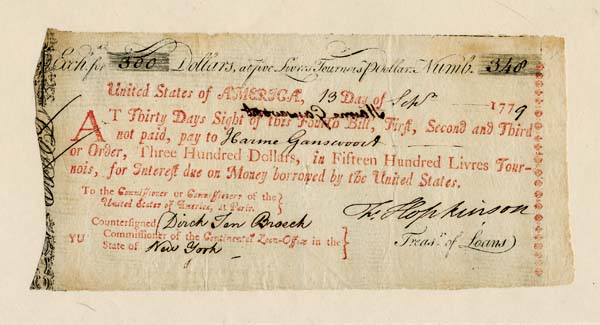 Exch. for 300 Dollars, at five Livres Tournois ⅌ Dollar. Numb. 348
United States of AMERICA, 13 Day of Sepr 1779
AT Thirty Days Sight of this Fourth Bill, First, Second and Third
not paid, pay to Harme Gansevoort
or Order, Three Hundred Dollars, in Fifteen Hundred Livres Tour-
nois, for Interest due on Money borrowed by the United States.
To the Commissioner or Commissioners of the
United States of America, at Paris.
F. Hopkinson
Treasr. of Loans
Countersigned Dirck Ten Broeck
YU Commissioner of the Continental Loan-Office in the
State of New York